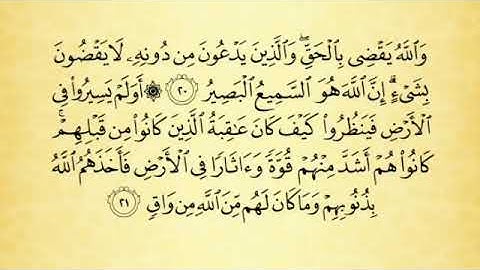 وَٱللَّهُ يَقْضِى بِٱلْحَقِّ ۖ وَٱلَّذِينَ يَدْعُونَ مِن دُونِهِۦ لَا يَقْضُونَ
بِشَىْءٍ ۗ إِنَّ ٱللَّهَ هُوَ ٱلسَّمِيعُ ٱلْبَصِيرُ ٢٠ ۞ أَوَلَمْ يَسِيرُوا۟ فِى
ٱلْأَرْضِ فَيَنظُرُوا۟ كَيْفَ كَانَ عَـٰقِبَةُ ٱلَّذِينَ كَانُوا۟ مِن قَبْلِهِمْ ۚ
كَانُوا۟ هُمْ أَشَدَّ مِنْهُمْ قُوَّةً وَءَاثَارًا فِى ٱلْأَرْضِ فَأَخَذَهُمُ ٱللَّهُ
بِذُنُوبِهِمْ وَمَا كَانَ لَهُم مِّنَ ٱللَّهِ مِن وَاقٍ ٢١